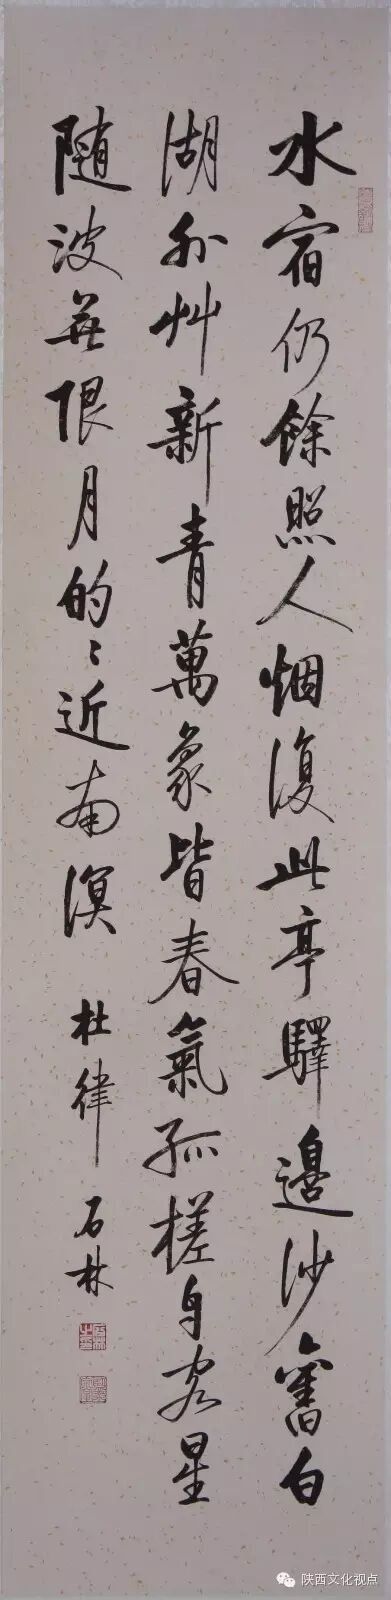 水宿仍餘照人烟復此亭驛邊沙舊白
湖外艸新青萬象皆春氣孤槎自客星
随波無限月的〻近南溟
杜律 石林
陕西文化视点